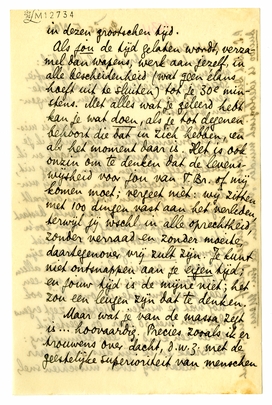 M12734
in dezen grootschen tijd.
Als jou de tijd gelaten wordt, verza-
mel dan wapens, werk aan jezelf, in
alle bescheidenheid (wat geen elans
hoeft uit te sluiten) tot je 30e min-
stens. Met alles wat je geleerd hebt
kan je wat doen, als je tot degenen
behoort die dat in zich hebben, en
als het moment daar is. Het is ook
onzin om te denken dat de levens-
wijsheid voor jou van T Br. of mij
komen moet; vergeet niet: wij zitten
met 100 dingen vast aan het verleden,
terwijl jij wschl. in alle oprechtheid
zonder verraad en zonder moeite,
daartegenover vrij zult zijn. Je kunt
niet ontsnappen aan je eigen tijd;
en jouw tijd is de mijne niet; het
zou een leugen zijn dat te denken.
Maar wat je van de massa zegt
is... hoovaardig. Precies zooals ik er
trouwens over dacht, d.w.z. met de
geestelijke superioriteit van menschen